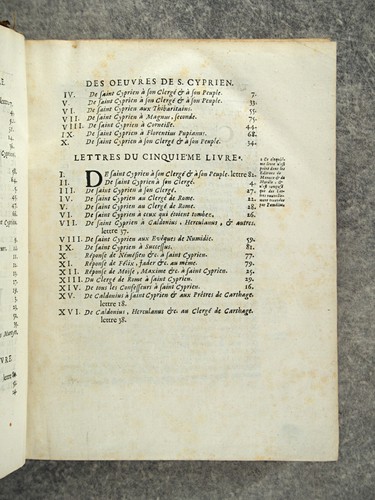 DES OEUVRES DE S. CYPRIEN.
IV. De saint Cyprien à son Clergé & à son Peuple. 7.
V. De saint Cyprien à son Clergé & à son Peuple. 33.
VI. De saint Cyprien aux Thibaritains. 55.
VII. De saint Cyprien à Magnus, seconde. 75.
VIII. De saint Cyprien à Corneille. 44.
IX. De saint Cyprien à Florentius Pupianus. 68.
X. De saint Cyprien à son Clergé & à son Peuple. 34.
LETTRES DU CINQUIEME LIVRE
I. DE saint Cyprien à son Clergé & à son Peuple. lettre 81.
II. De saint Cyprien à son Clergé. 4.
III. De saint Cyprien à son Clergé.
IV. De saint Cyprien au Clergé de Rome. 22.
V. De saint Cyprien au Clergé de Rome. 28.
VI. De saint Cyprien à ceux qui étoient tombez. 26.
VII. De saint Cyprien à Caldonius, Herculanus, & autres.
lettre 37.
VIII. De saint Cyprien aux Evéques de Numidie. 59.
IX. De saint Cyprien à Successus. 81.
X. Réponse de Némésien &c à saint Cyprien. 77.
XI. Réponse de Félix, Jader &c au même. 79.
XII. Réponse de Moïse, Maxime &c à saint Cyprien. 25.
XIII. Du Clergé de Rome à saint Cyprien. 29.
XIV. De tous les Confesseurs à saint Cyprien. 16.
XV. De Caldonius à saint Cyprien & aux Prêtres de Carthage.
lettre 18.
XVI. De Caldonius, Herculanus &c. au Clergé de Carthage.
lettre 38.